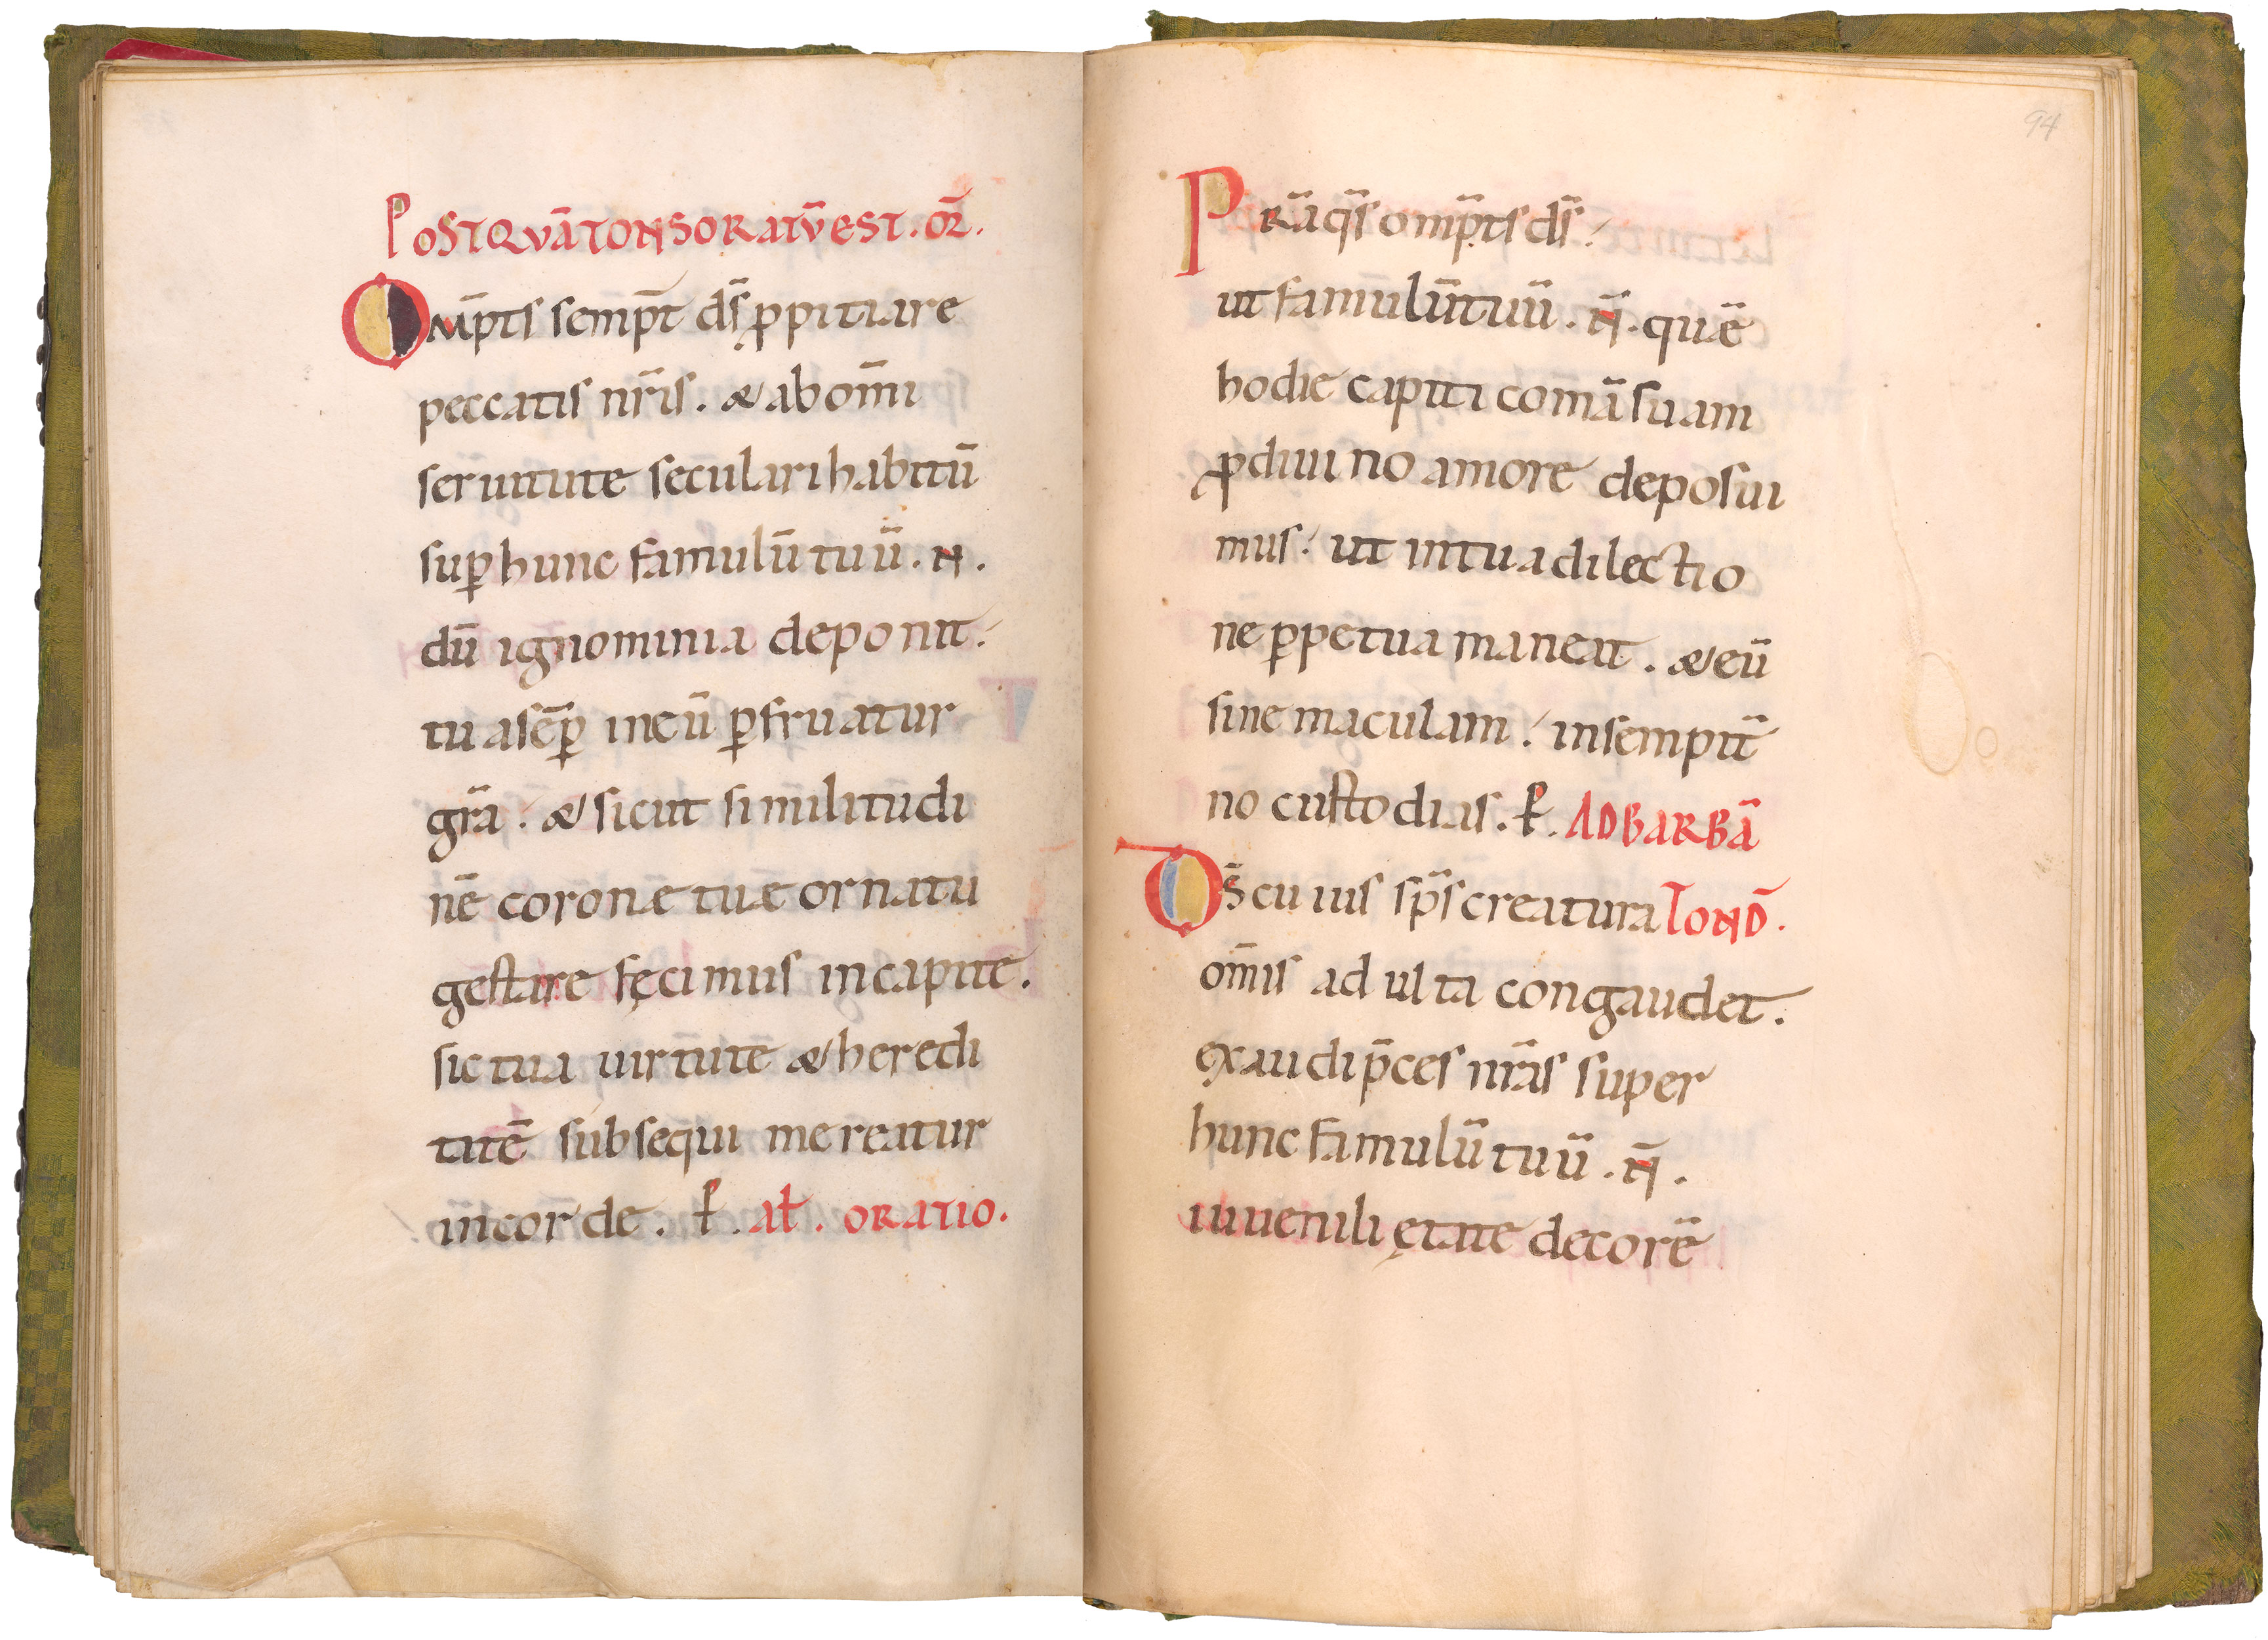 PoSTQVĀ TONSORATŪ EST. OR̄.
Om̄pts sempt̄ ds̄ ꝓpitiare
peccatis nr̄is. & ab om̄i
seruitute seculari habitū
suꝑ hunc famulū tuū. N.
dū ignominia deponit.
tua sēꝑ in eū ꝑfruatur
gr̄a. & sicut similitudi
nē coronæ tuæ ornatu
gestare fęcimus in capite.
sic tua uirtute & heredi
tatē subsequi mereatur
in corde. ꝑ. Al̄. ORATIO.
94
Pr̄a qs̄ omp̄ts ds̄.
ut famulū tuū. N̄. quē
hodie capiti comā suam
ꝓ diuino amore deposui
mus. ut in tua dilectio
ne ꝑpetua maneat. & eū
sine maculam. in sempit̄
no custodias. ꝑ. AD BARBĀ
Ds̄ cuius sp̄s creatura TOND̄.
om̄is adulta congaudet.
exaudi p̄ces nr̄as super
hunc famulū tuū. N̄.
iuuenili ętate decorē